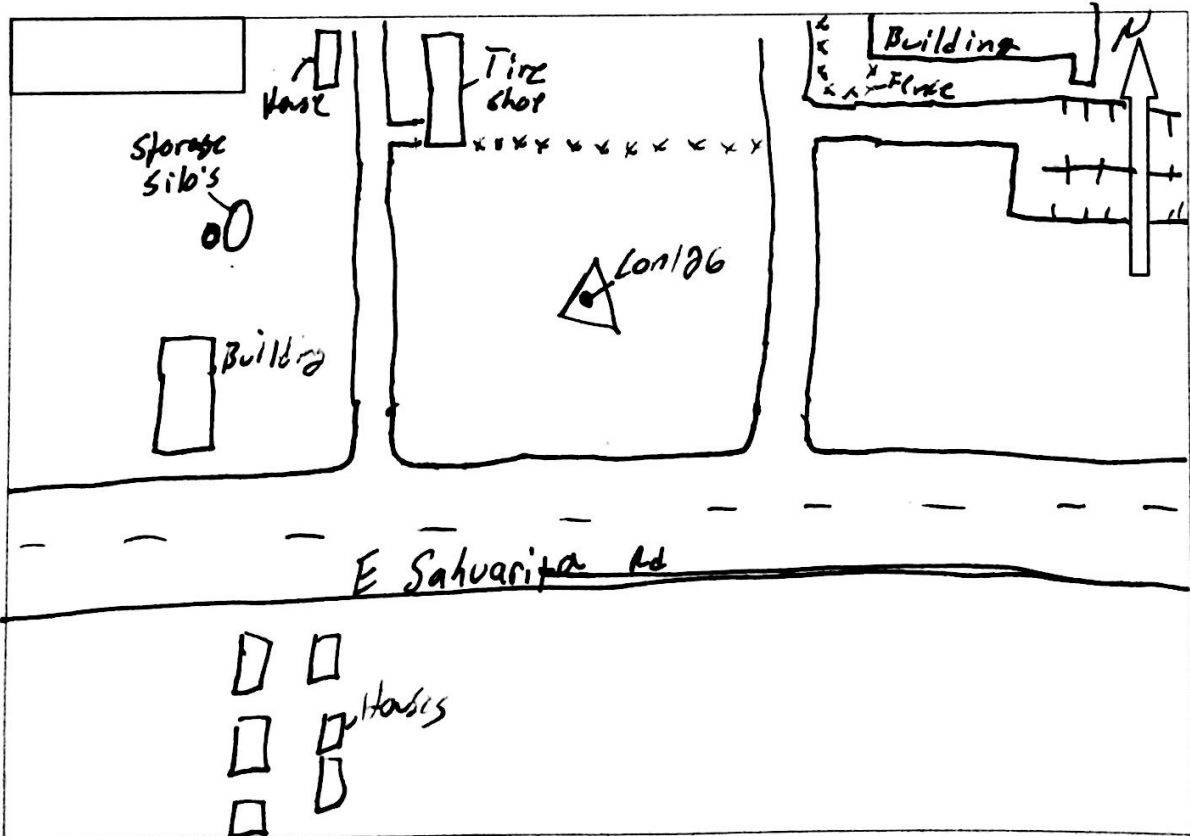 House
Tire
shop
Building
Fence
N
Storage
Silo's
Con126
Building
E Sahuarita Rd
Houses